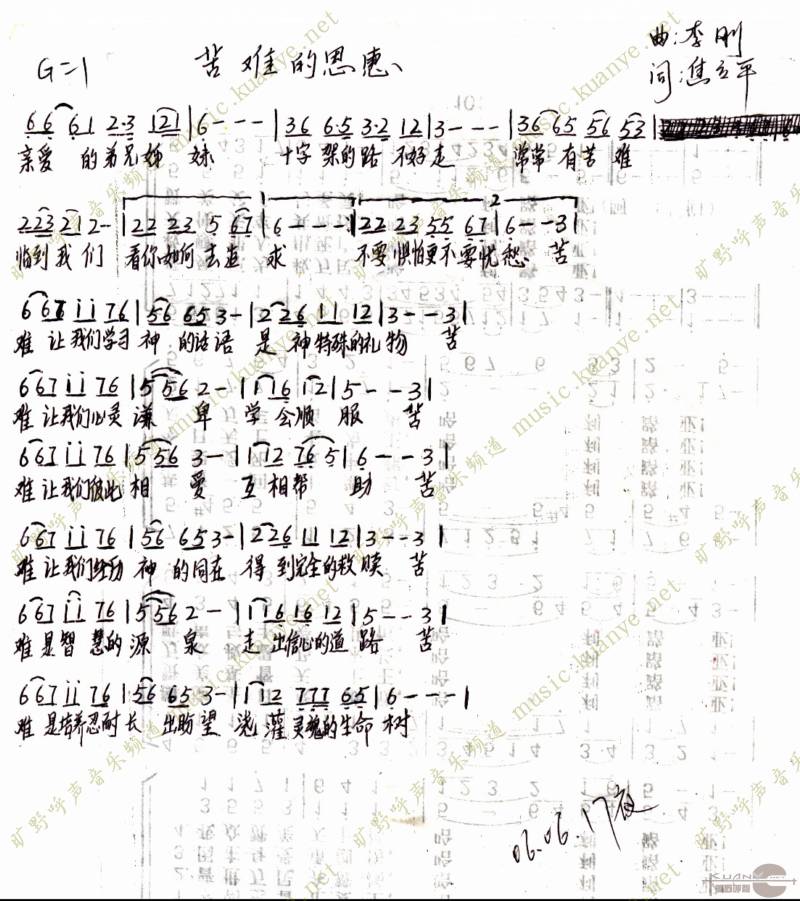 苦难的恩惠
曲:李刚
G=1
词:焦立平
66 61 2·3 121 | 6 - - - | 36 6·5 3·2 12 | 3 - - - | 36 65 56 53 |
亲爱 的弟兄姊 妹 十字 架的路 不好走 常常 有苦 难
223 21 2 - | 22 23 5 67 | 6 - - - | 22 23 55 67 | 6 - - 3 |
2
临到我们 看你如何去追 求 不要惧怕更不要忧愁 苦
667 ii 76 | 56 65 3 - | 2 26 11 12 | 3 - - 3 |
难 让我们学习 神 的话语 是 神特殊的礼物 苦
667 ii 76 | 5 56 2 - | 1 16 12 | 5 - - 3 |
难 让我们心灵 谦 卑 学会顺 服 苦
667 ii 76 | 5 56 3 - | 1 12 76 5 | 6 - - 3 |
难 让我们彼此 相 爱 互相帮 助 苦
667 ii 76 | 56 653 - | 2 26 11 12 | 3 - - 3 |
难 让我们经历 神 的同在 得 到完全的救赎 苦
667 ii 76 | 5 56 2 - | 1 16 16 12 | 5 - - 3 |
难 是智慧的 源 泉 走 出信心的道路 苦
667 ii 76 | 56 65 3 - | 1 12 777 65 | 6 - - - |
难 是培养忍耐 长 出盼望 浇灌灵魂的生命树
06.06.17夜
旷野呼声音乐频道 music.kuanye.net